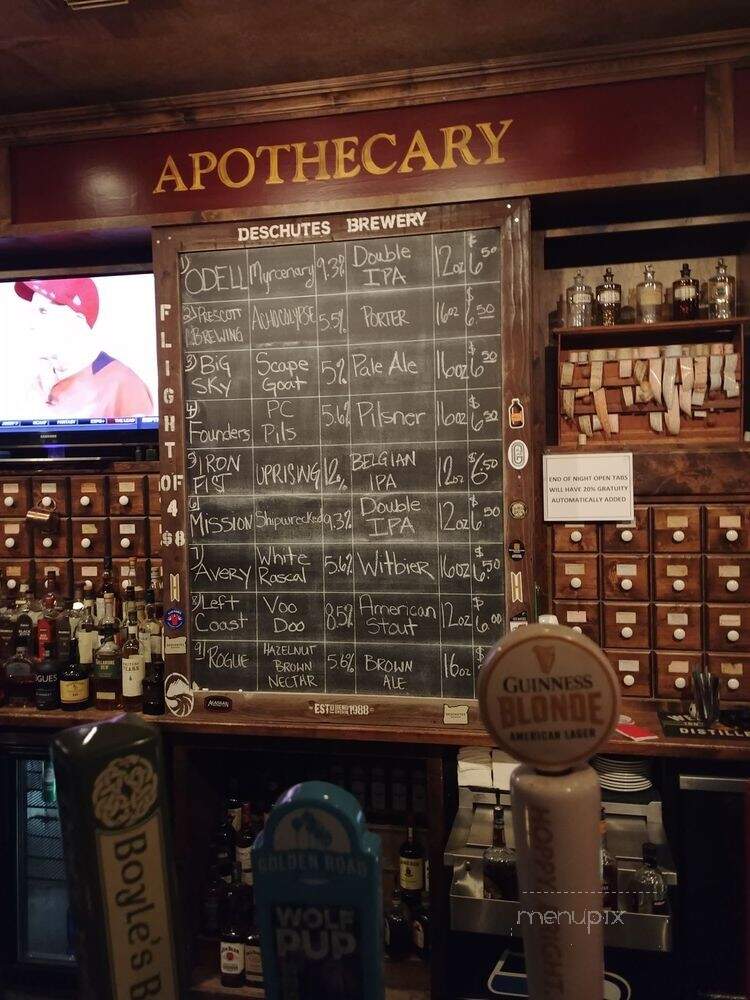 APOTHECARY
DESCHUTES BREWERY
FLIGHT OF 4 $8
1) ODELL Myrcenary 9.3% Double IPA 12oz $6.50
2) PRESCOTT BREWING 5.5% PORTER 16oz $6.50
3) BIG SKY Scape Goat 5% Pale Ale 16oz $6.50
4) Founders PC Pils 5.6% Pilsner 16oz $6.50
5) IRON FIST UPRISING 12% BELGIAN IPA 12oz $6.50
6) MISSION Shipwrecked 9.3% Double IPA 12oz $6.50
7) AVERY White Rascal 5.6% Witbier 16oz $6.50
8) Left Coast Voo Doo 8.5% American Stout 12oz $6.00
9) ROGUE HAZELNUT BROWN NECTAR 5.6% BROWN ALE 16oz $
EST 1988
END OF NIGHT OPEN TABS
WILL HAVE 20% GRATUITY
AUTOMATICALLY ADDED
GUINNESS
BLONDE
AMERICAN LAGER
Boyle's B
GOLDEN ROAD
WOLF
PUP
menupix